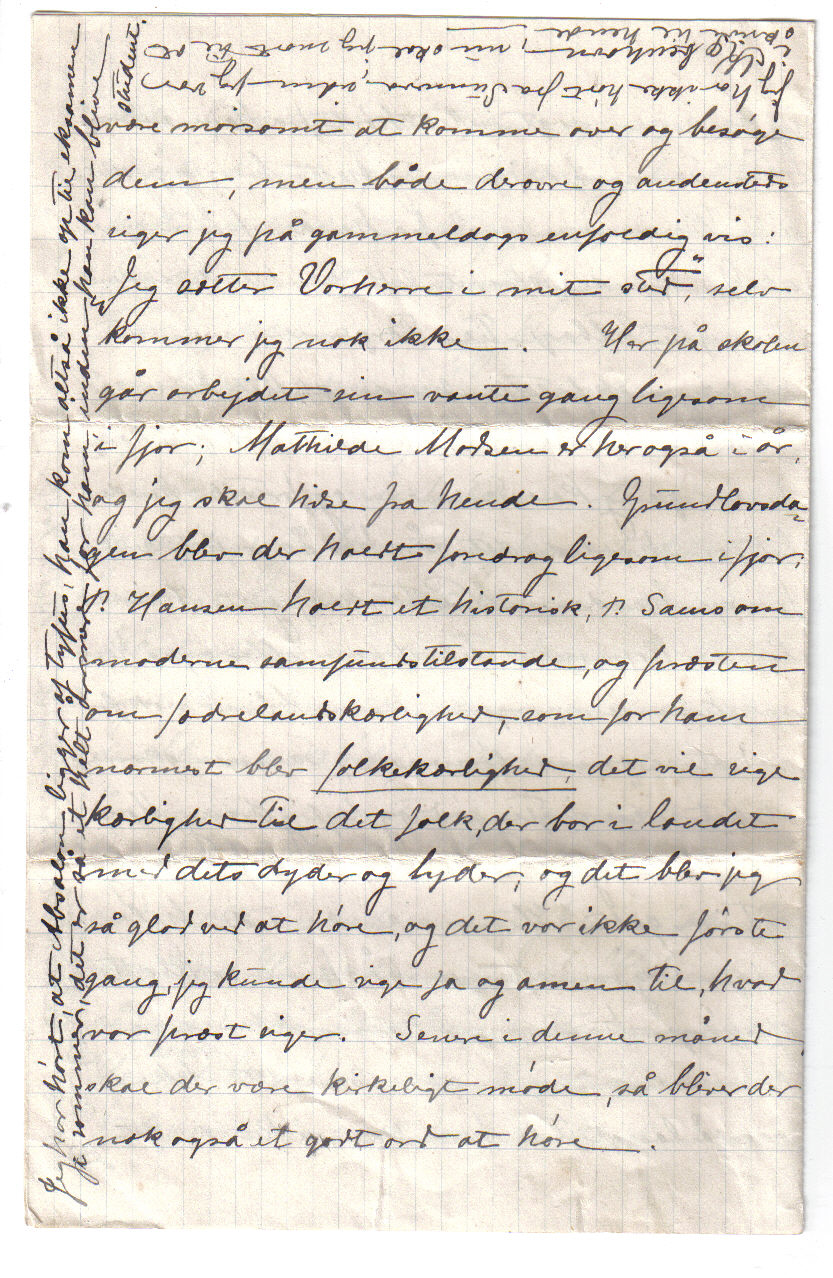 være morsomt at komme over og besøge
dem, men både derovre og andensteds
siger jeg på gammeldags enfoldig vis:
"Jeg sætter Vorherre i mit sted", selv
kommer jeg nok ikke. Her på skolen
går arbejdet sin vante gang ligesom
i fjor; Mathilde Madsen er her også i år,
og jeg skal hilse fra hende. Grundlovsda-
gen blev der holdt foredrag ligesom i fjor;
P. Hansen holdt et historisk, P. Sams om
moderne samfundstilstande, og præsten
om fædrelandskærlighed, som for ham
nærmest blev folkekærlighed, det vil sige
kærlighed til det folk, der bor i landet
med dets dyder og lyder, og det blev jeg
så glad ved at høre, og det var ikke første
gang, jeg kunde sige ja og amen til, hvad
vor præst siger. Senere i denne måned
skal der være kirkeligt møde, så bliver der
nok også et godt ord at høre.
Jeg har hørt, at Absalon ligger af tyfus, han kom altså ikke op til eksamen
i sommer, det er så et helt år mere for ham, inden han kan blive
student.
Jeg har ikke hørt fra Sunneva, siden jeg var
i København, nu skal jeg snart til at
skrive til hende